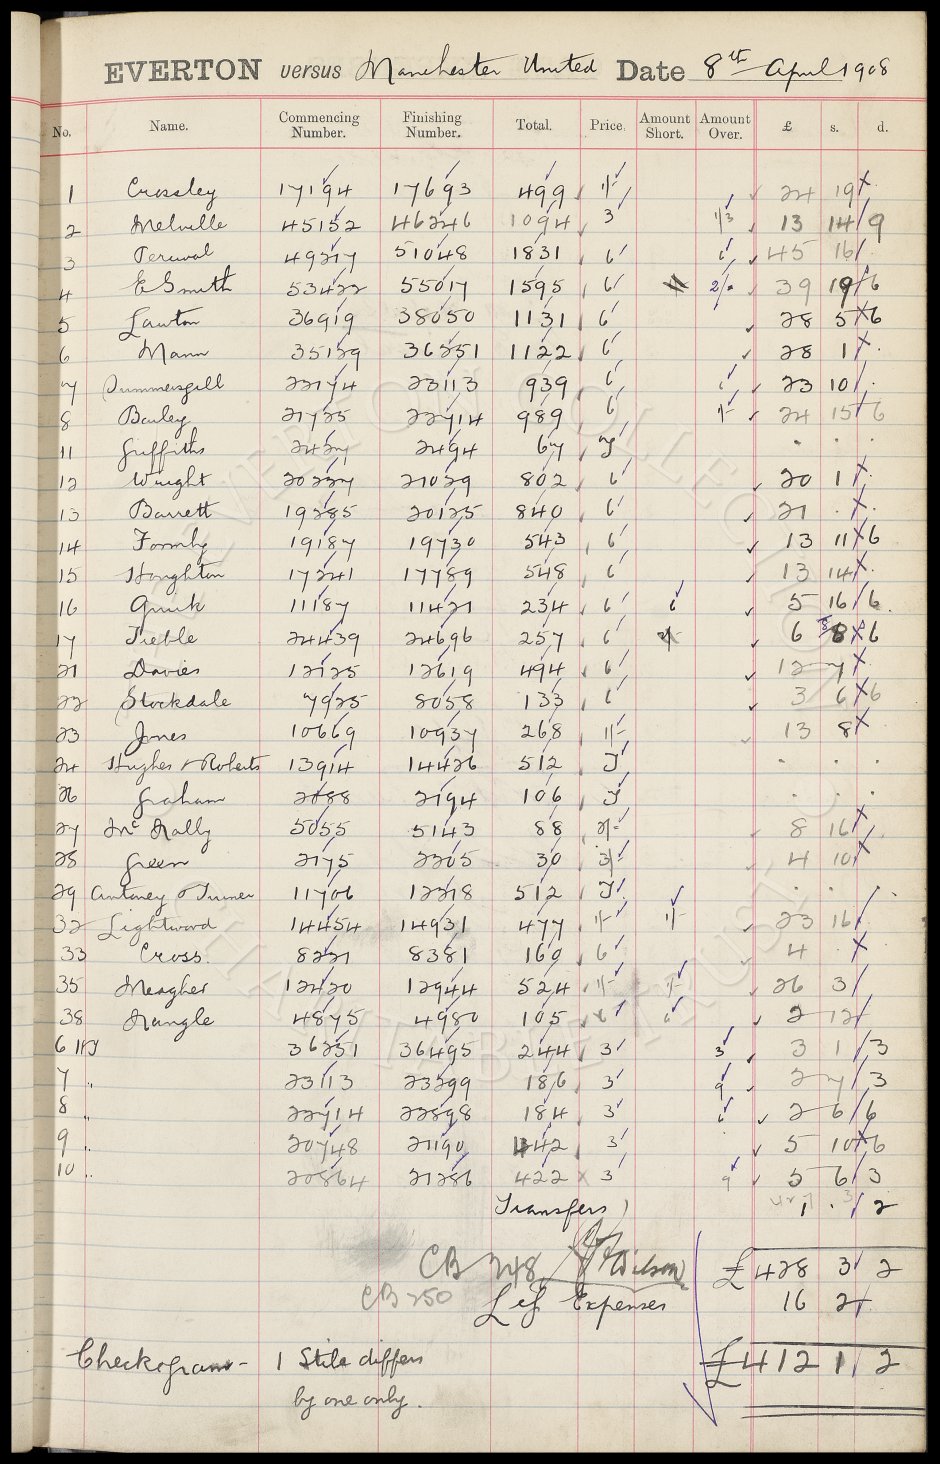 EVERTON versus Manchester United Date 8th April 1908
No. Name. Commencing Number. Finishing Number. Total. Price. Amount Short. Amount Over. £ s. d.
1 Crossley 17194 17693 499 1/- 24 19 .
2 Melville 45152 46246 1094 3 1/3 13 14 9
3 Percival 49217 51048 1831 6 6 45 16 .
4 E Smith 53422 55017 1595 6 2/- 39 19 6
5 Lawton 36919 38050 1131 6 28 5 6
6 Mann 35129 36251 1122 6 28 1 .
7 Summersgill 22174 23113 939 6 6 23 10 .
8 Bailey 21725 22714 989 6 1/- 24 15 6
11 Griffiths 2427 2494 67 J . . .
12 Wright 20227 21029 802 6 20 1 .
13 Barrett 19285 20125 840 6 21 . .
14 Formby 19187 19730 543 6 13 11 6
15 Houghton 17241 17789 548 6 13 14 .
16 Quirk 11187 11421 234 6 6 5 16 6
17 Treble 24439 24696 257 6 6 8 6
21 Davies 12125 12619 494 6 12 7
22 Stockdale 7925 8058 133 6 3 6 6
23 Jones 10669 10937 268 1/- 13 8
24 Hughes & Roberts 13914 14426 512 J . . .
26 Graham 2088 2194 106 J . . .
27 McNally 5055 5143 88 2/- 8 16
28 Green 2175 2205 30 3/- 4 10
29 Antoney & Turner 11706 12218 512 J . . .
32 Lightwood 14454 14931 477 1/- 1/- 23 16
33 Cross 8221 8381 160 6 4 .
35 Meagher 12420 12944 524 1/- 1/- 26 3
38 Nangle 4875 4980 105 6 6 2 12
6 HJ 36251 36495 244 3 3 3 1 3
7 " 23113 23299 186 3 9 2 7 3
8 " 22714 22898 184 3 6 2 6 6
9 " 20748 21190 442 3 5 10 6
10 " 20864 21286 422 3 9 5 6 3
Transfers 1 . 2
CB 248 Wilson £428 3 2
CB 250 Less Expenses 16 2
Checkgram - 1 Stile differs £412 1 2
by one only.